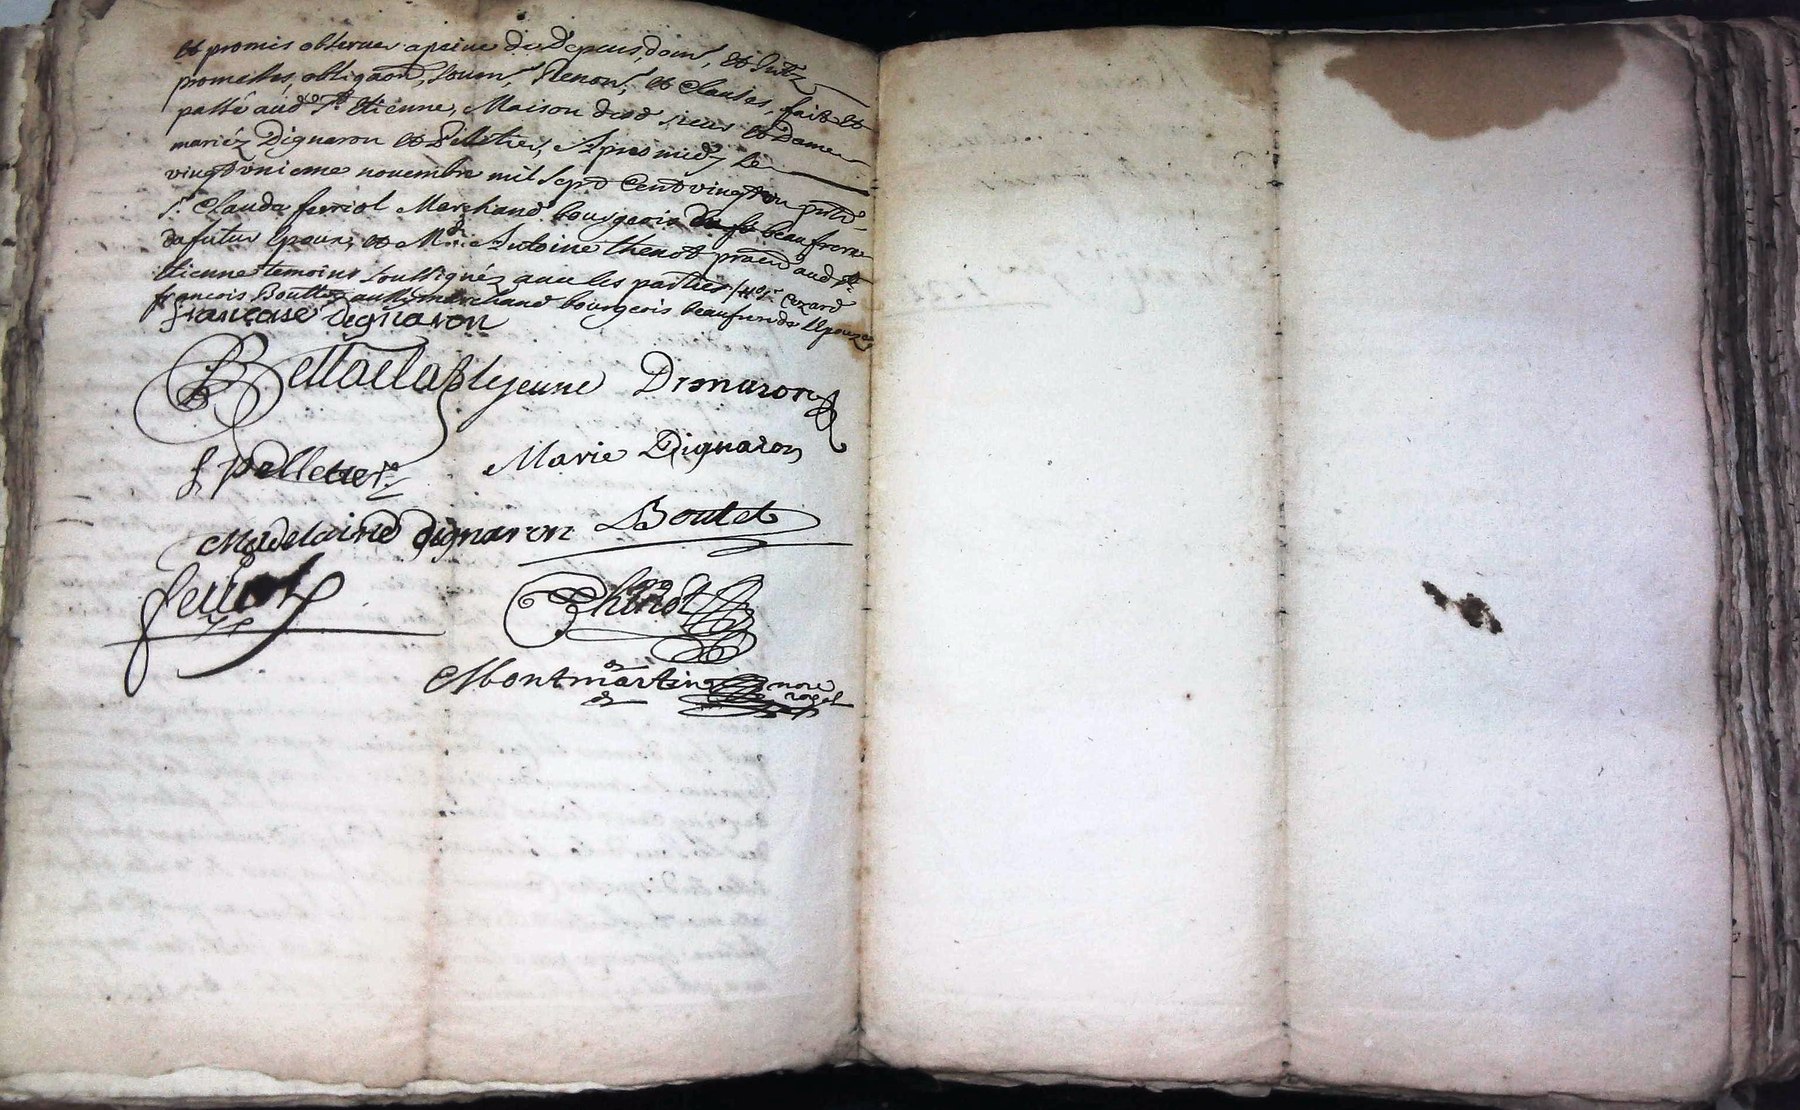 et promis observer a peine de Depens, dom, et Intz
promesses, obligaon, soum, Renon, et Clauses, fait et
passé aud. St. Etienne, Maison desd sieur et Dame
mariéz Dignaron et Pelletier, Apres midy le
vingt unieme novembre mil Sept Cent vingt un
Sr. Claude ferriol Marchand bourgeois beaufrere
du futur Epoux, et Me. Antoine thenot aud. St.
Etienne temoins soussignéz avec les parties
françois Boutet aussi marchand bourgeois beaufrere de
françoise dignaron
lejeune Dignaron
f pelletier Marie Dignaron
Madelaine dignaron Boutet
ferriol Thenot
Montmartin nore royal